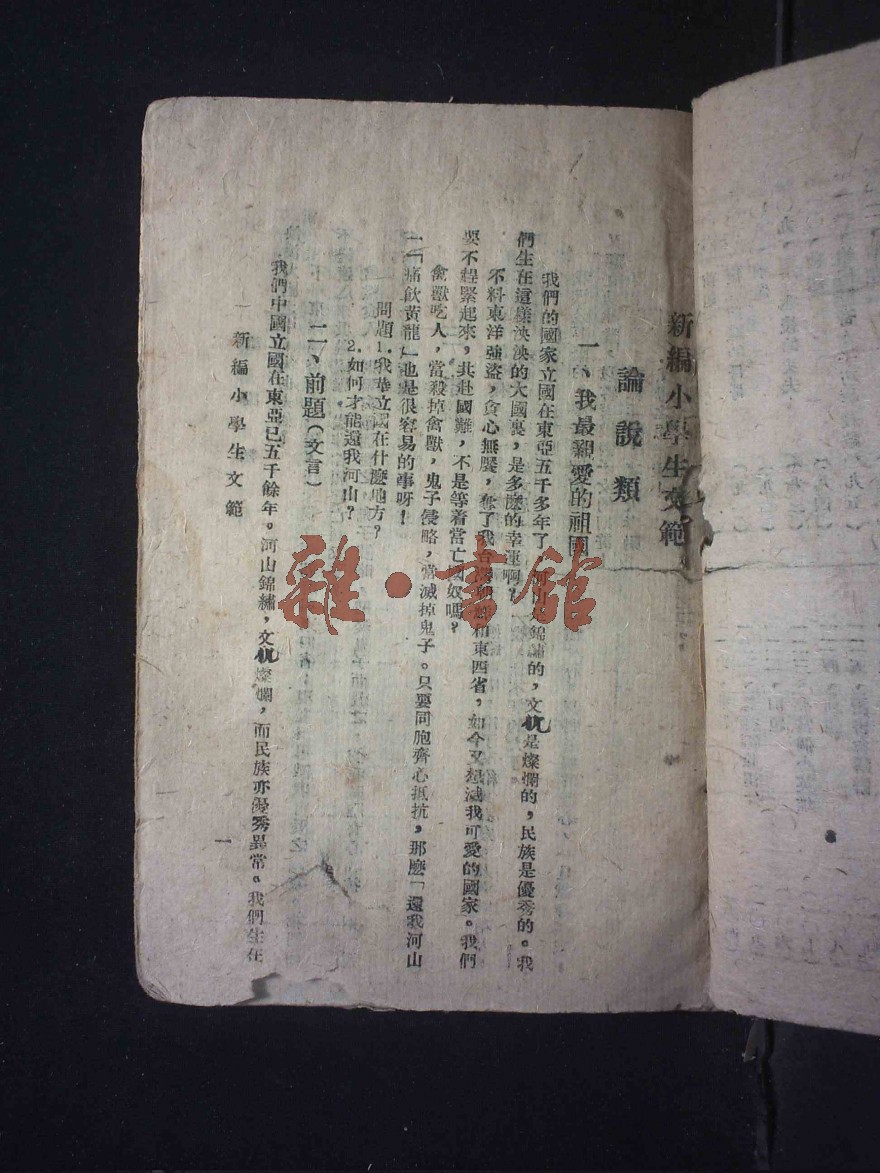 新編小學生文範
論說類
一、我最親愛的祖國
我們的國家立國在東亞五千多年了，河山是錦繡的，文化是燦爛的，民族是優秀的。我
們生在這樣泱泱的大國裏，是多麽的幸運啊？
不料東洋強盜，貪心無饜，奪了我台灣朝鮮和東四省，如今又想滅我可愛的國家。我們
要不趕緊起來，共赴國難，不是等着當亡國奴嗎？
禽獸吃人，當殺掉禽獸，鬼子侵略，當滅掉鬼子。只要同胞齊心抵抗，那麽「還我河山
」「痛飲黃龍」也是很容易的事呀！
問題1.我華立國在什麽地方？
2.如何才能還我河山？
二、前題（文言）
我們中國立國在東亞已五千餘年。河山錦繡，文化燦爛，而民族亦優秀異常。我們生在
新編小學生文範
一
雜·書館